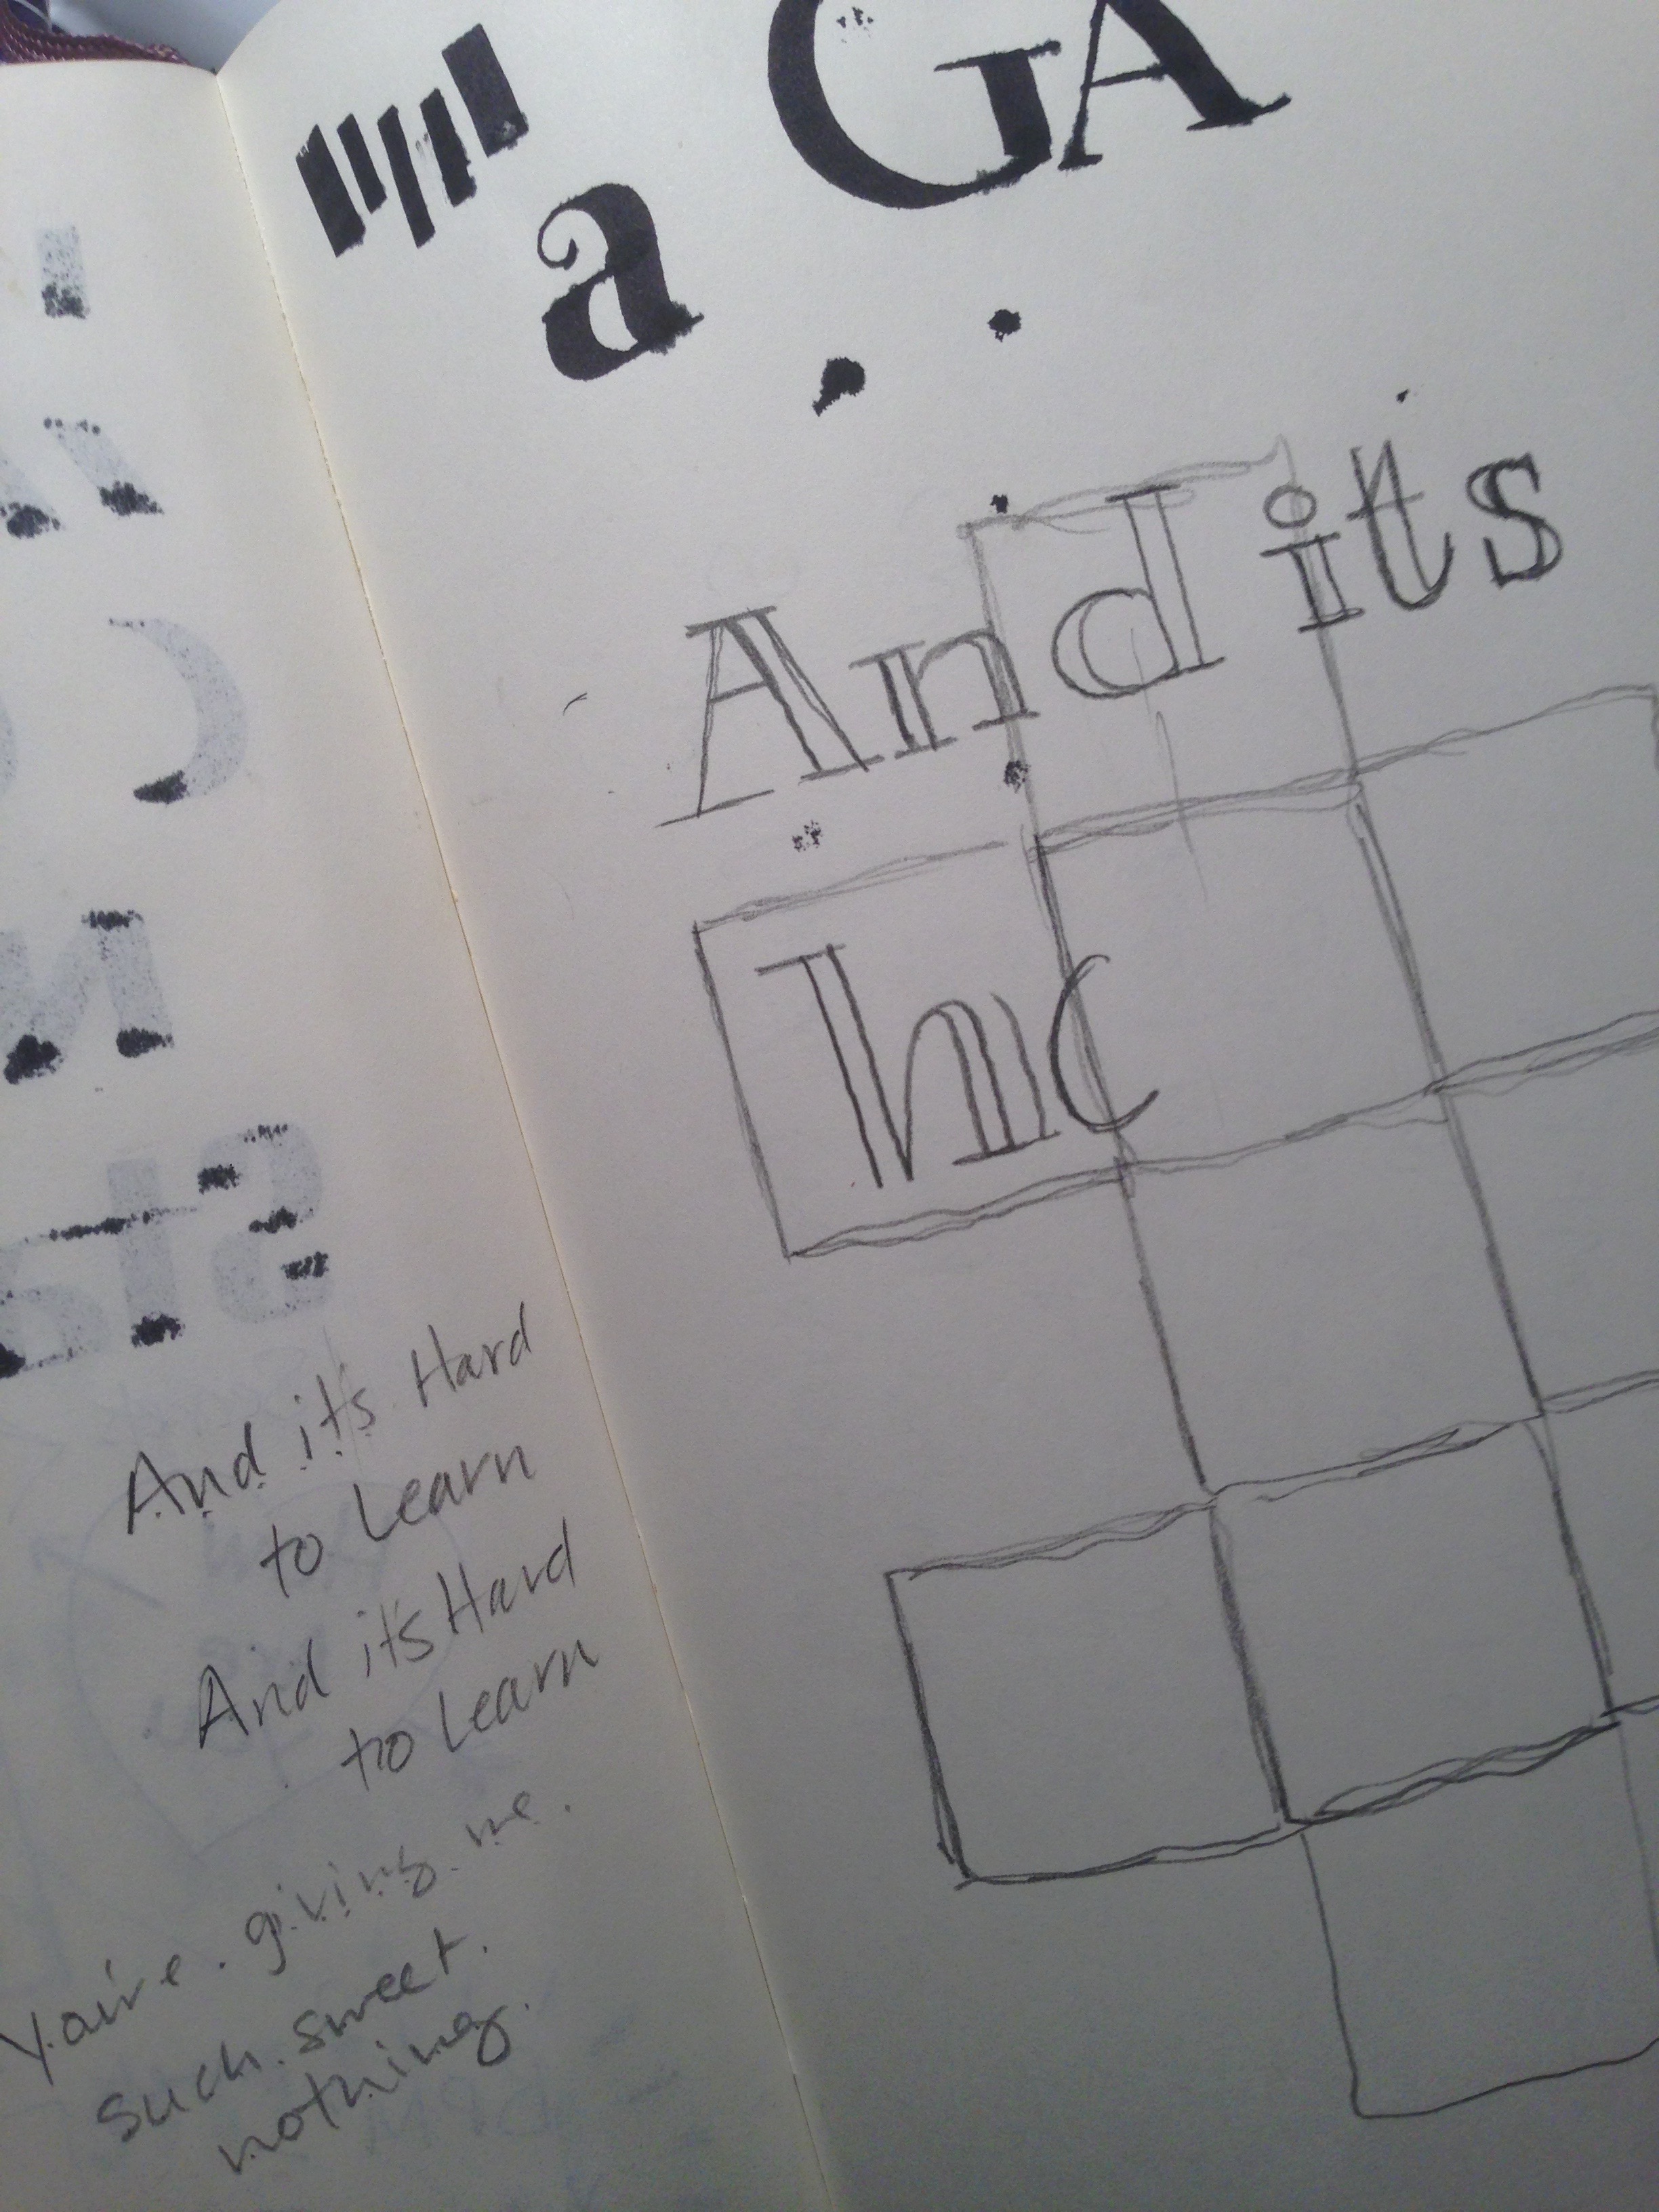 And it's Hard
to Learn
And it's Hard
to Learn
You're. giving. me.
Such. sweet.
nothing.
GA
a
And its